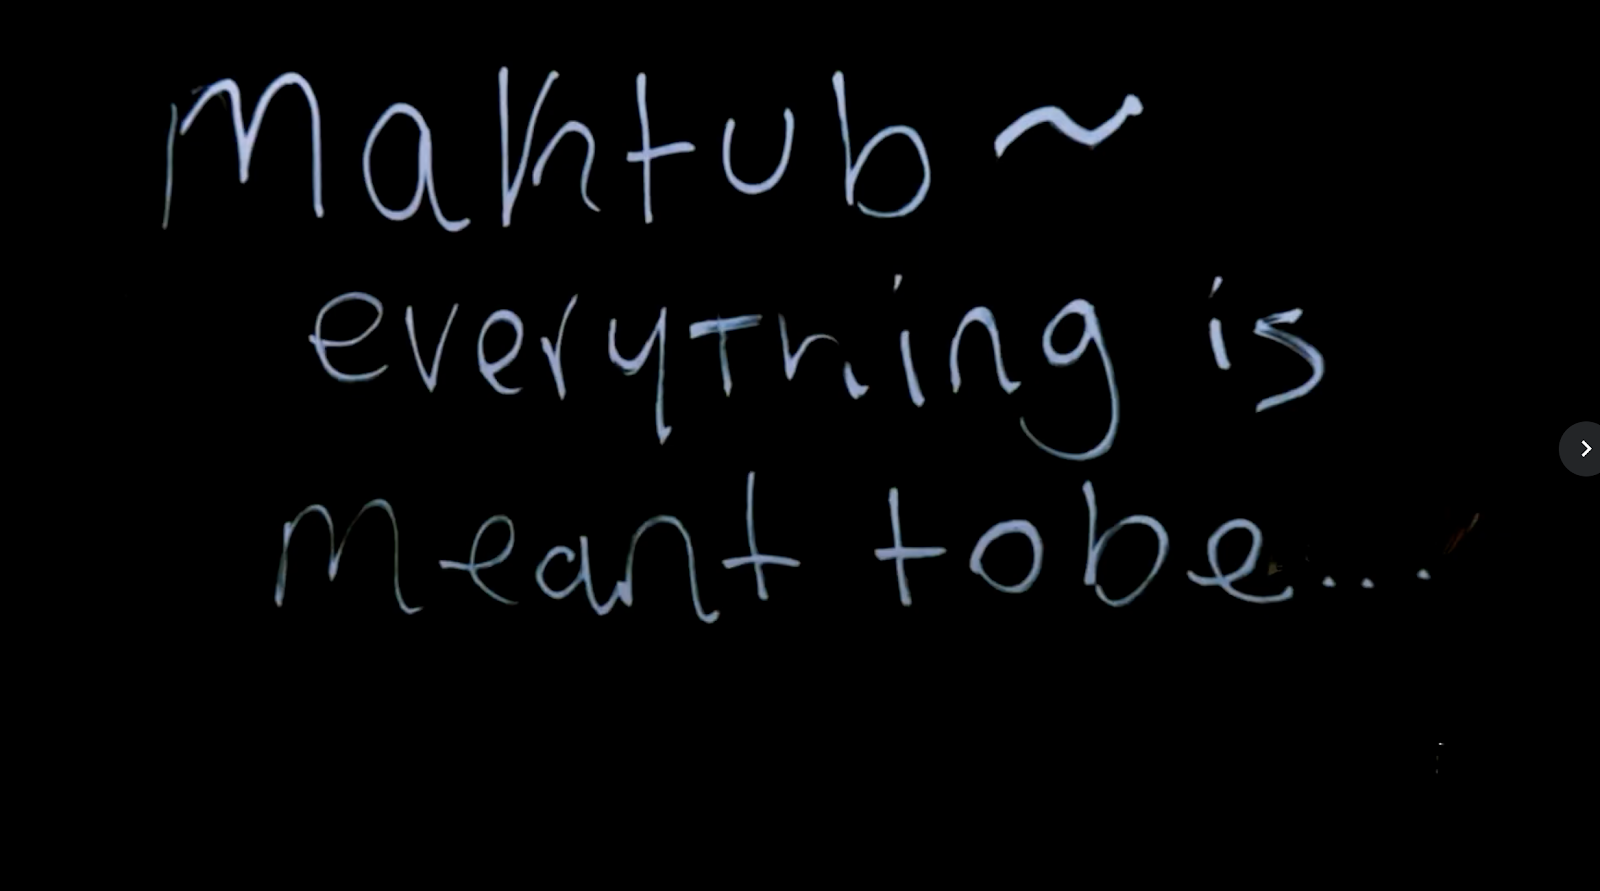 Maktub ~
everything is
meant to be...